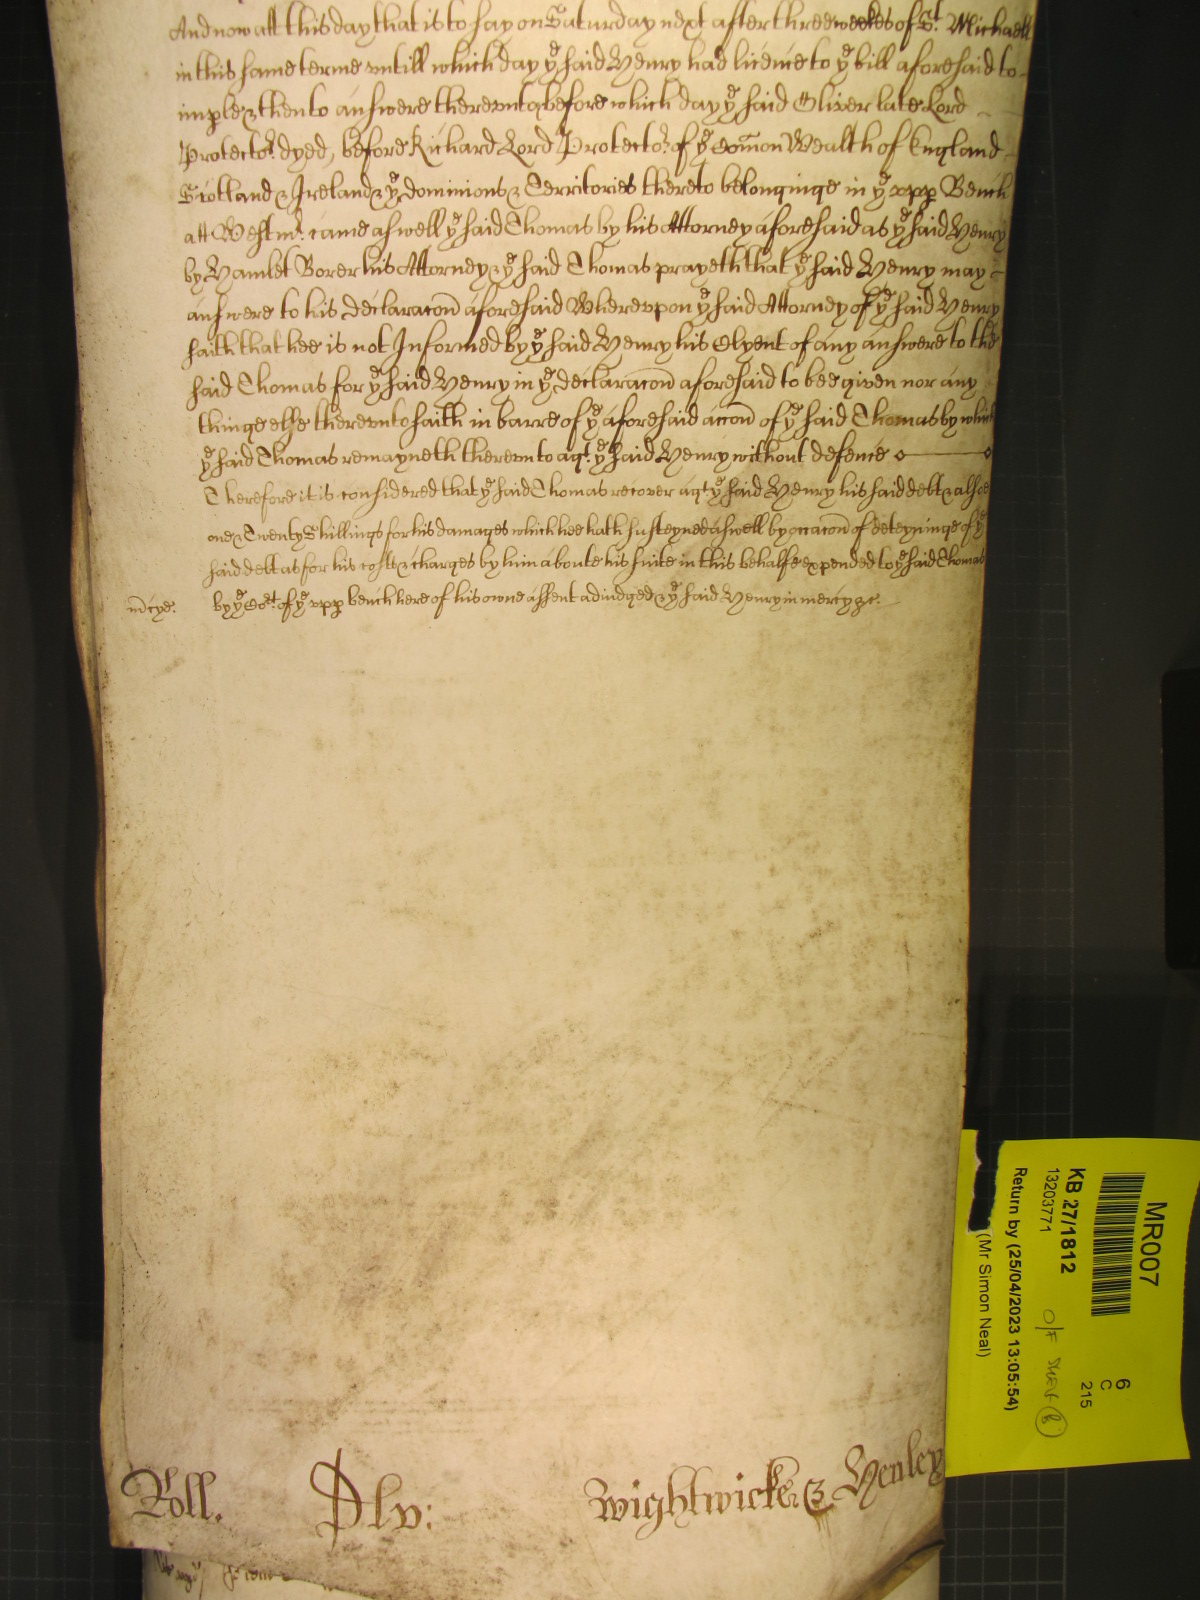 And now att this day that is to say on Saturday next after three weekes of St. Michaell
in this same terme untill which day ye said Henry had licence to ye bill aforesaid to
imple & then to answere thereunto, before which day ye said Oliver late Lord
Protector. dyed, before Richard Lord Protector. of ye Com̄on Wealth of England
Scotland & Ireland & ye dominions & Territories thereto belonginge in ye upp Bench
att Westmr. came aswell ye said Thomas by his Attorney aforesaid as ye said Henry
by Hamlet Borer his Attorney & ye said Thomas prayeth that ye said Henry may
answere to his declaracon̄ aforesaid Whereupon ye said Attorney of ye said Henry
saith that hee is not Informed by ye said Henry his Clyent of any answere to the
said Thomas for ye said Henry in ye declaracon̄ aforesaid to bee given nor any
thinge else thereunto saith in barre of ye aforesaid accon̄ of ye said Thomas by which
ye said Thomas remayneth thereunto agt. ye said Henry without defence
Therefore it is considered that ye said Thomas recover agt ye said Henry his said debt & alsoe
one & Twenty Shillings for his damages which hee hath susteyned aswell by occacon̄ of deteyninge of ye
said debt as for his costs & charges by him aboute his suite in this behalfe expended to ye said Thomas
by ye Cort. of ye upp bench here of his owne assent adiudged & ye said Henry in mercy &c.
m̄cye.
Roll.
Dlv:
Wightwicke & Henley
MR007
KB 27/1812
13203771
Return by (25/04/2023 13:05:54)
(Mr Simon Neal)
6
C
215
O/F